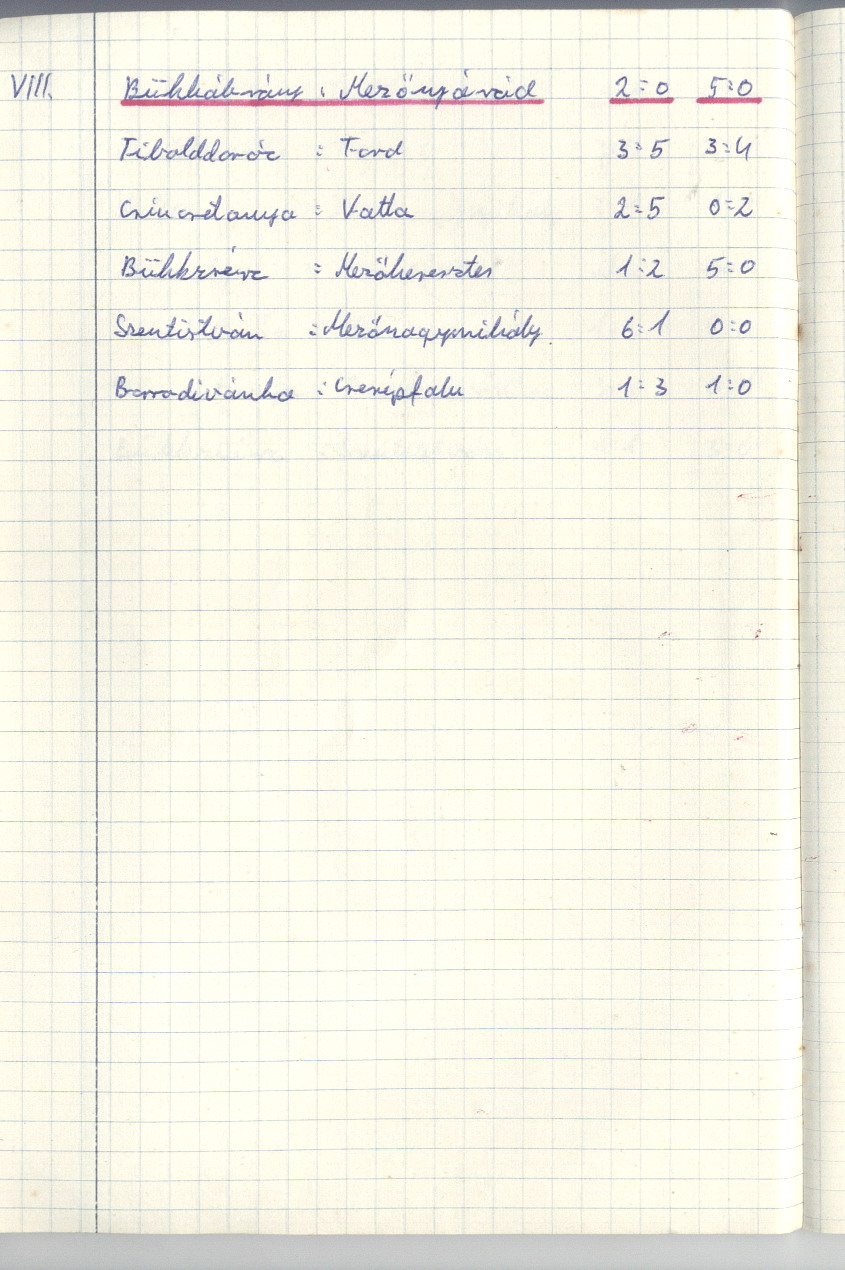 VIII. Bükkábrány : Mezőnyárád 2:0 5:0
Tibolddaróc : Tard 3:5 3:4
Csincsetanya : Vatta 2:5 0:2
Bükkzsérc : Mezőkeresztes 1:2 5:0
Szentistván : Mezőnagymihály 6:1 0:0
Borsodivánka : Cserépfalu 1:3 1:0